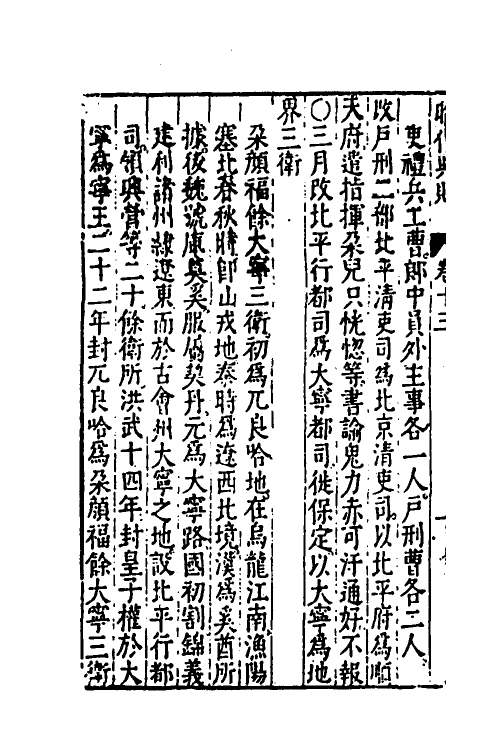 昭代典則　卷十三
吏禮兵工曹郎中員外主事各一人戶刑曹各二人
改戶刑二部北平清吏司為北京清吏司以北平府為順
天府遣指揮朶兒只恍惚等書諭鬼力赤可汗通好不報
○三月改北平行都司為大寧都司徙保定以大寧為地
界三衛
朶顏福餘大寧三衛初為兀良哈地在烏龍江南漁陽
塞北春秋時卽山戎地秦時為遼西北境漢為奚酋所
據後魏號庫莫奚服屬契丹元為大寧路國初割錦義
建利諸州隸遼東而於古會州大寧之地設北平行都
司領興營等二十餘衛所洪武十四年封皇子權於大
寧為寧王二十二年封兀良哈為朶顏福餘大寧三衛